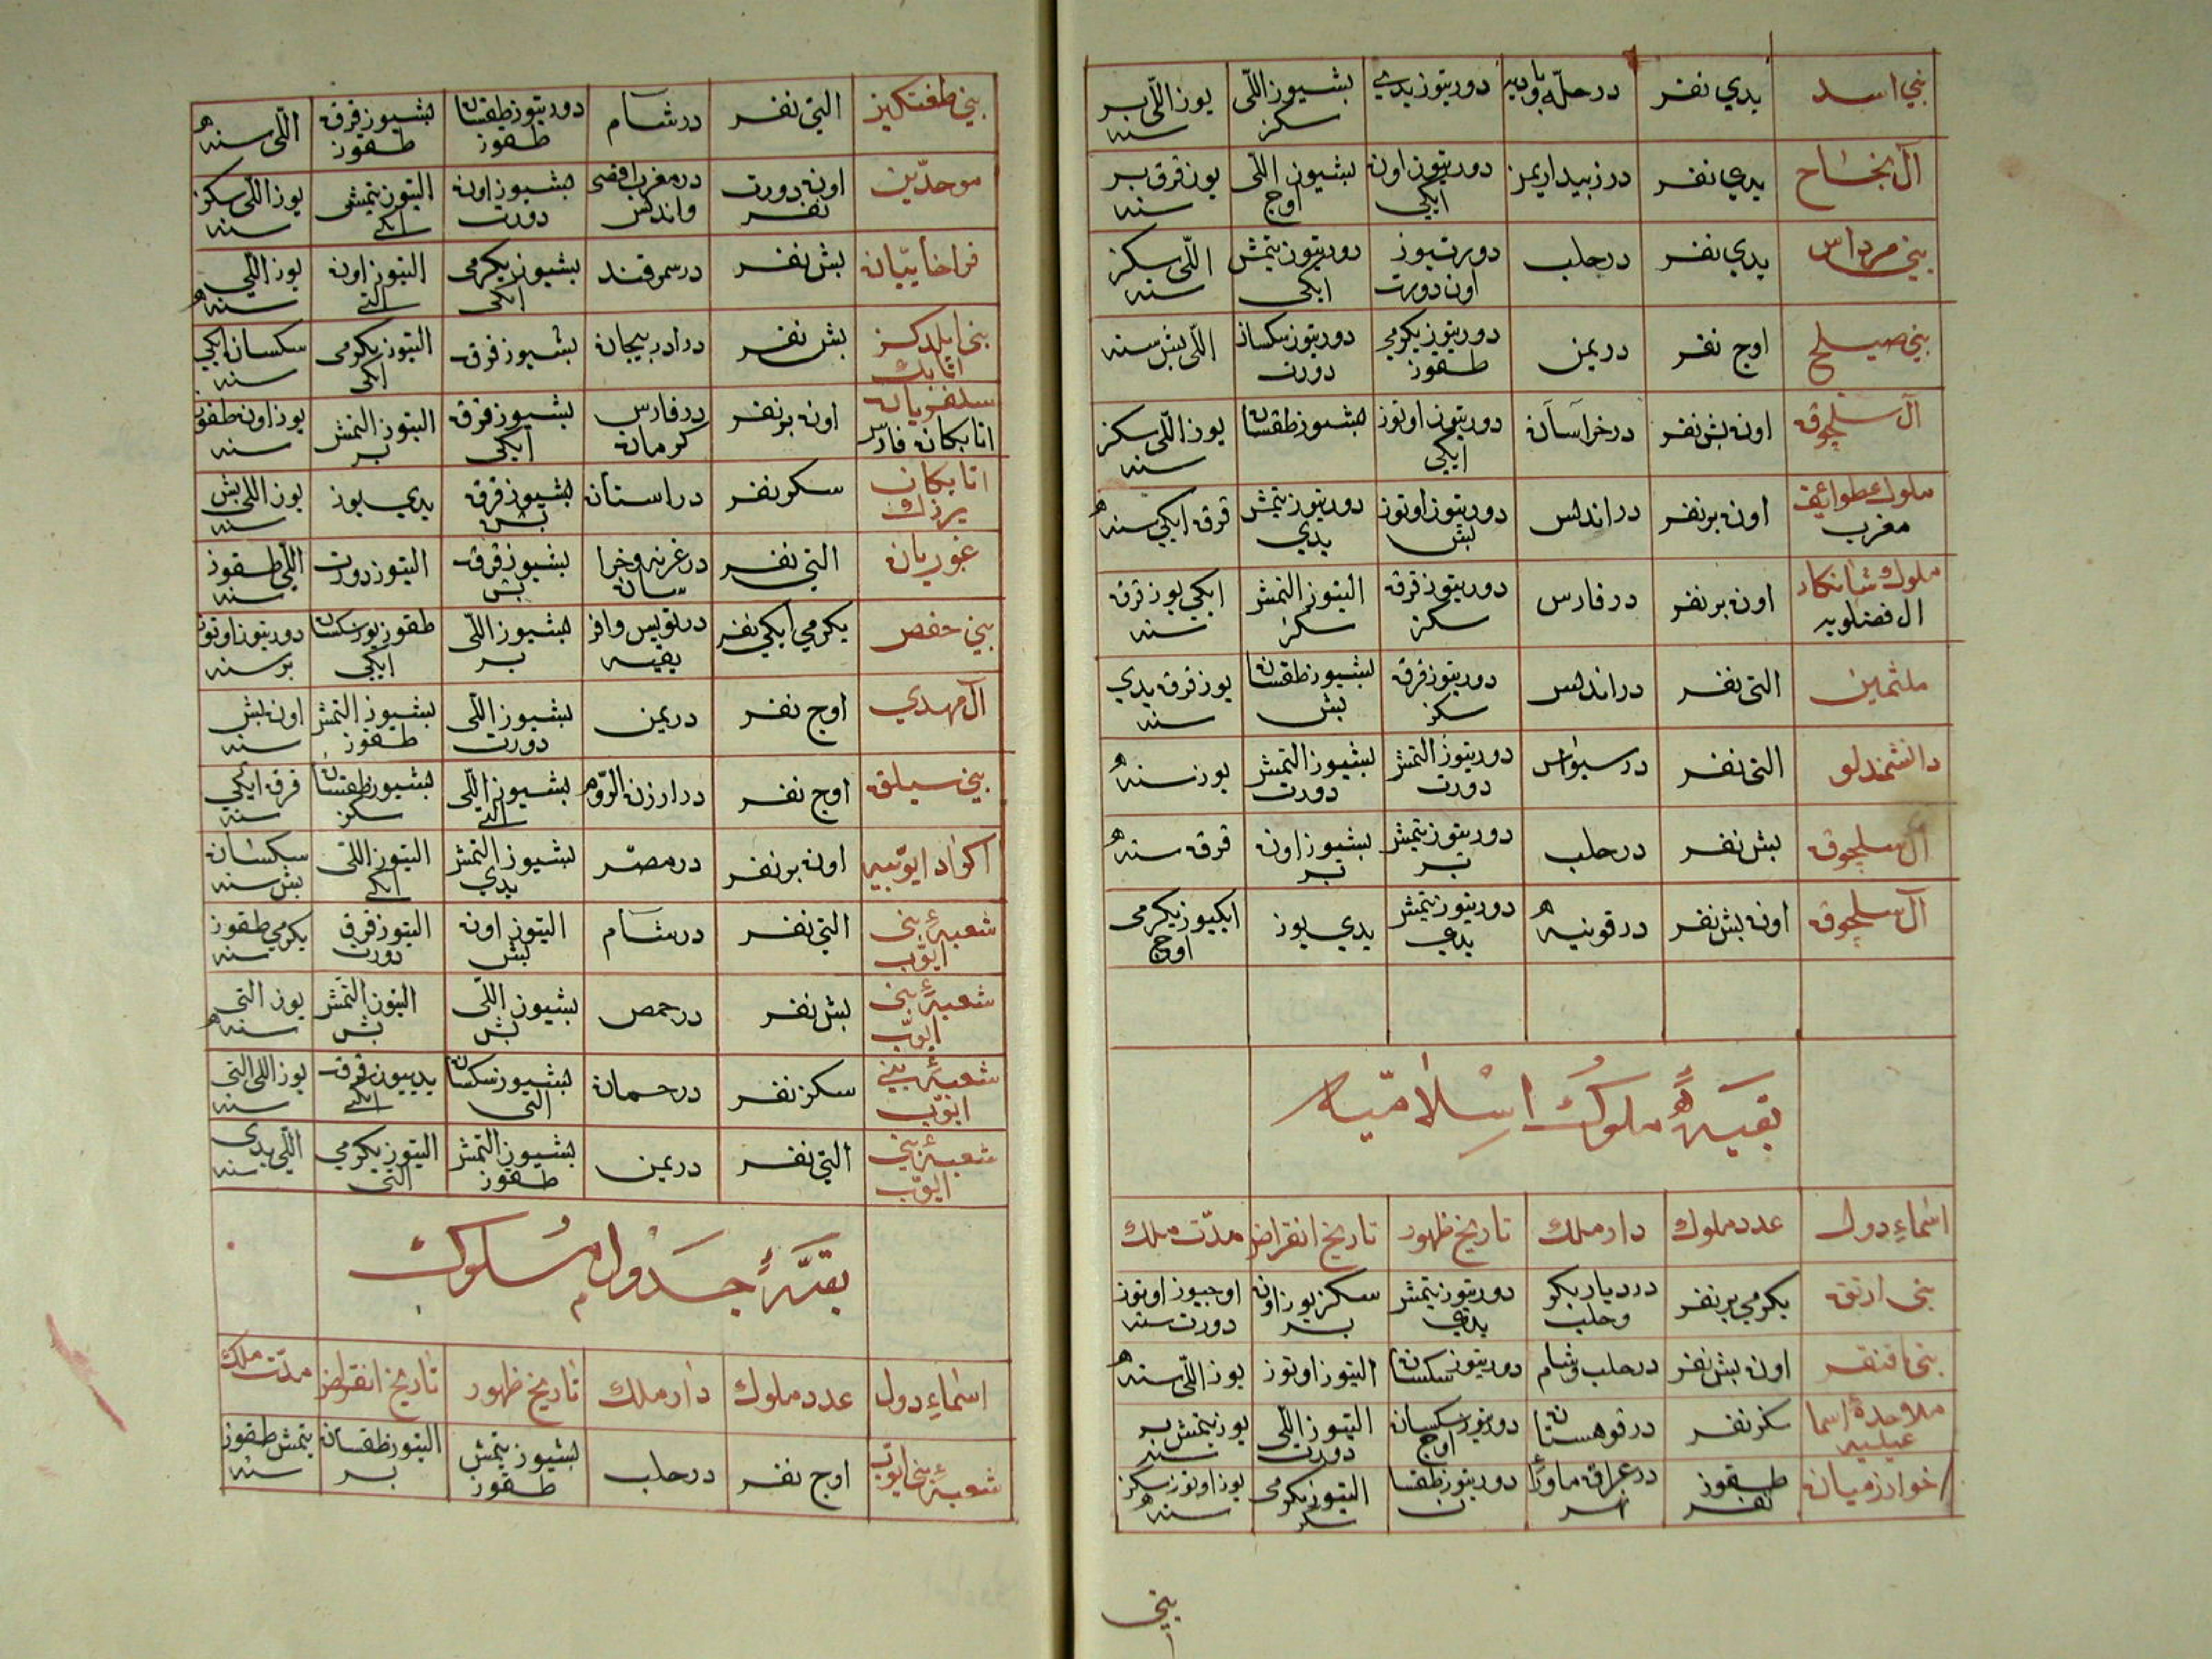 بني اسد يدي نفر در حلّه باديه دورتيوز يدي بشيوز اللّى سكز يوز اللّى بر سنه
آل نجاح يدي نفر در زبيد اريمن دورتيوز اون ايكي بشيوز اللّى اوج يوز قرق بر سنه
بني مرداس يدي نفر در حلب دورتيوز اون دورت دورتيوز يتمش ايكى اللّى سكز سنه
بني صيلح اوج نفر در يمن دورتيوز يكرمي طقوز دورتيوز سكسان دورت اللّى بش سنه
آل سلجوق اون بش نفر در خراسان دورتيوز اوتوز ايكي بشيوز طقسان يوز اللّى سكز سنه
ملوك طوائف مغرب اون بر نفر در اندلس دورتيوز اوتوز بش دورتيوز يتمش يدي قرق ايكي سنه
ملوك شبانكار ال فضلويه اون بر نفر در فارس دورتيوز قرق سكز التيوز التمش سكز ايكي يوز قرق سنه
ملثمين التى نفر در اندلس دورتيوز قرق سكز بشيوز طقسان بش يوز قرق يدي سنه
دانشمندلو التى نفر در سيواس دورتيوز التمش دورت بشيوز التمش دورت يوز سنه
آل سلجوق بش نفر در حلب دورتيوز يتمش بر بشيوز اون بر قرق سنه
آل سلجوق اون بش نفر در قونيه دورتيوز يتمش يدي يدي يوز ايكييوز يكرمى اوج
بقيهٔ ملوك اسلاميه
اسماءِ دول عدد ملوك دار ملك تاريخ ظهور تاريخ انقراض مدّت ملك
بنى ارتق يكرمي بر نفر در ديار بكر وحلب دورتيوز يتمش يدي سكز يوز اون بر اوجيوز اوتوز دورت سنه
بنى اقنقر اون بش نفر در حلب وشام دورتيوز سكسان التيوز اوتوز يوز اللّى سنه
ملاحدهٔ اسما عيليه سكز نفر در قوهستان دورتيوز سكسان اوج التيوز اللّى دورت يوز يتمش بر سنه
خوارزميان طقوز نفر در عراق ماورأ نهر دورتيوز طقسان التيوز يكرمى سكز يوز اوتوز سكز سنه
بني
بني طغتكيز التي نفر در شام دورتيوز طقسان طقوز بشيوز قرق طقوز اللّى سنه
موحدّين اون دورت نفر در مغرب اقصى واندلس بشيوز اون دورت التيوز يتمش ايكى يوز اللّى سكز سنه
قراختاييان بش نفر در سمرقند بشيوز يكرمى ايكى التيوز اون التى يوز اللّي سنه
بني ايلدكز اتابك بش نفر در ادربيجان بشيوز قرق التيوز يكرمى ايكى سكسان ايكي سنه
سلغريان اتابكان فارس اون بر نفر در فارس كرمان بشيوز قرق ايكى التيوز التمش بر يوز اون طقوز سنه
اتابكان يزد سكز نفر در استان بشيوز قرق بش يدي يوز يوز اللى بش سنه
غوريان التى نفر در غزنه وخرا سان بشيوز قرق بش التيوز دورت اللّى طقوز سنه
بني حفص يكرمي ايكي نفر در تونس وافر يقيه بشيوز اللّى بر طقوز يوز سكسان ايكي دورتيوز اوتوز بر سنه
آل مهدي اوج نفر در يمن بشيوز اللّى دورت بشيوز التمش طقوز اون بش سنه
بني سيلق اوج نفر در ارزن الروم بشيوز اللّى التى بشيوز طقسان سكز قرق ايكي سنه
اكراد ايوبيه اون بر نفر در مصر بشيوز التمش يدي التيوز اللّى ايكى سكسان بش سنه
شعبهٔ بنى ايوّب التي نفر در شام التيوز اون بش التيوز قرق دورت يكرمي طقوز سنه
شعبهٔ بنى ايوّب بش نفر در حمص بشيوز اللّى بش التيوز التمش بش يوز التى سنه
شعبهٔ بني ايوّب سكز نفر در حمان بشيوز سكسان التى يدييوز قرق ايكى يوز اللى التى سنه
شعبهٔ بني ايوّب التي نفر در يمن بشيوز التمش طقوز التيوز يكرمي التى اللّى يدى سنه
بقيهٔ جدول ملوك
اسماءِ دول عدد ملوك دار ملك تاريخ ظهور تاريخ انقراض مدّت ملك
شعبهٔ بنى ايوّب اوج نفر در حلب بشيوز يتمش طقوز التيوز طقسان بر يتمش طقوز سنه